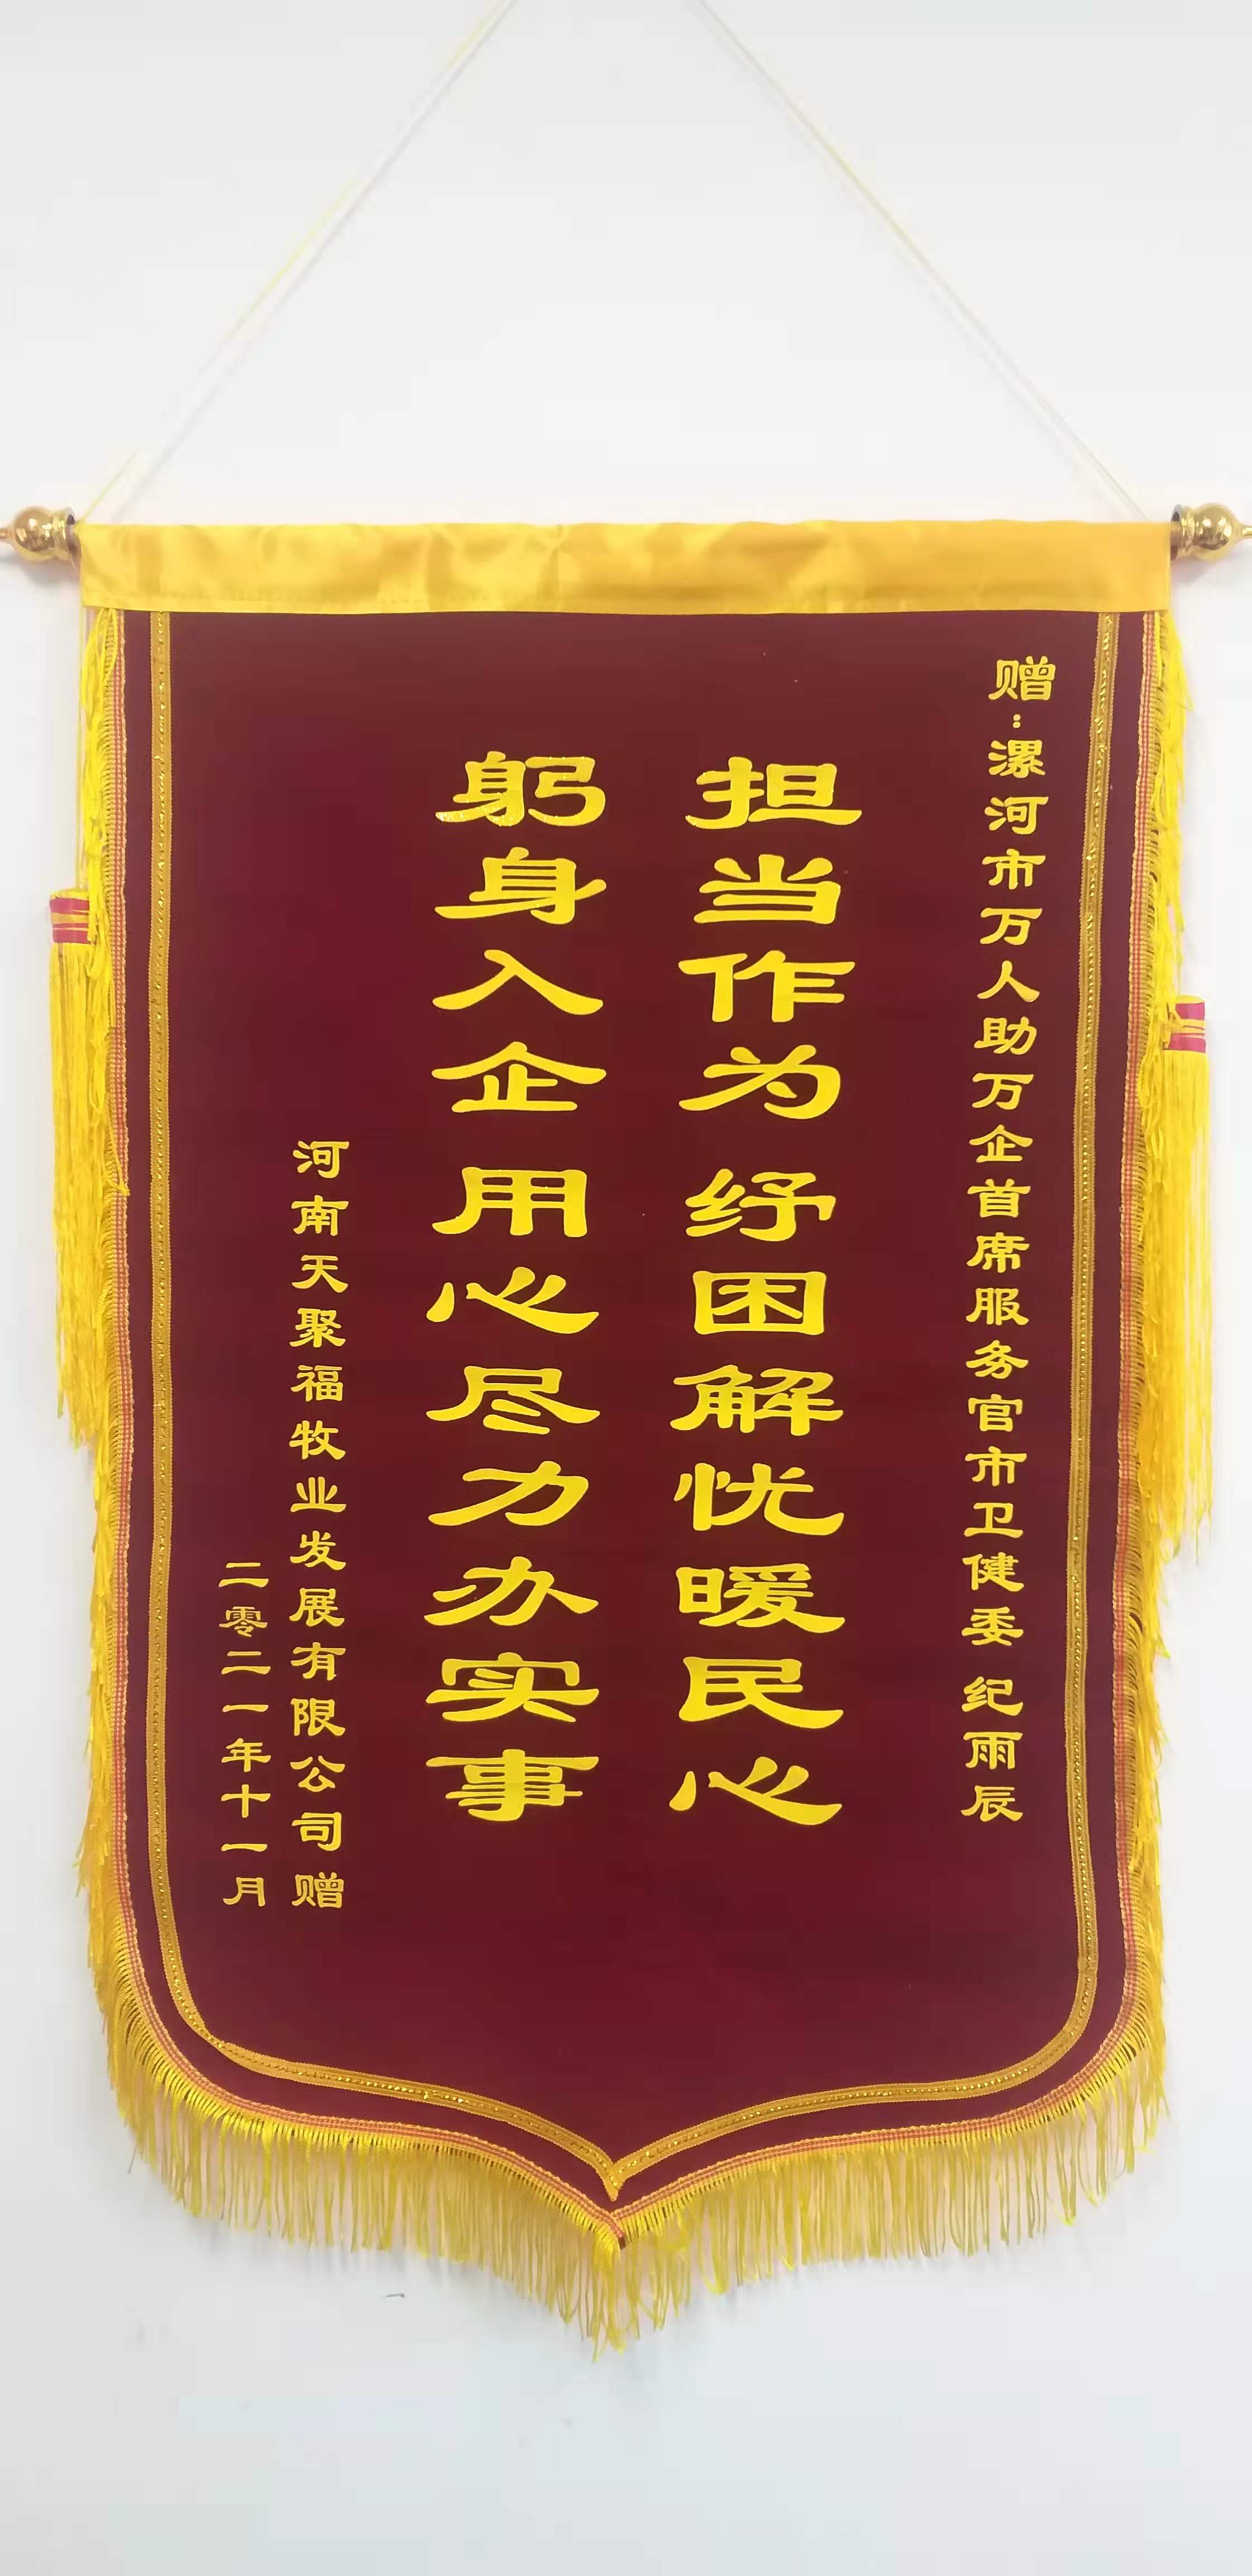 赠：漯河市万人助万企首席服务官市卫健委 纪雨辰
担当作为 纾困解忧暖民心
躬身入企 用心尽力办实事
河南天聚福牧业发展有限公司 赠
二零二一年十一月